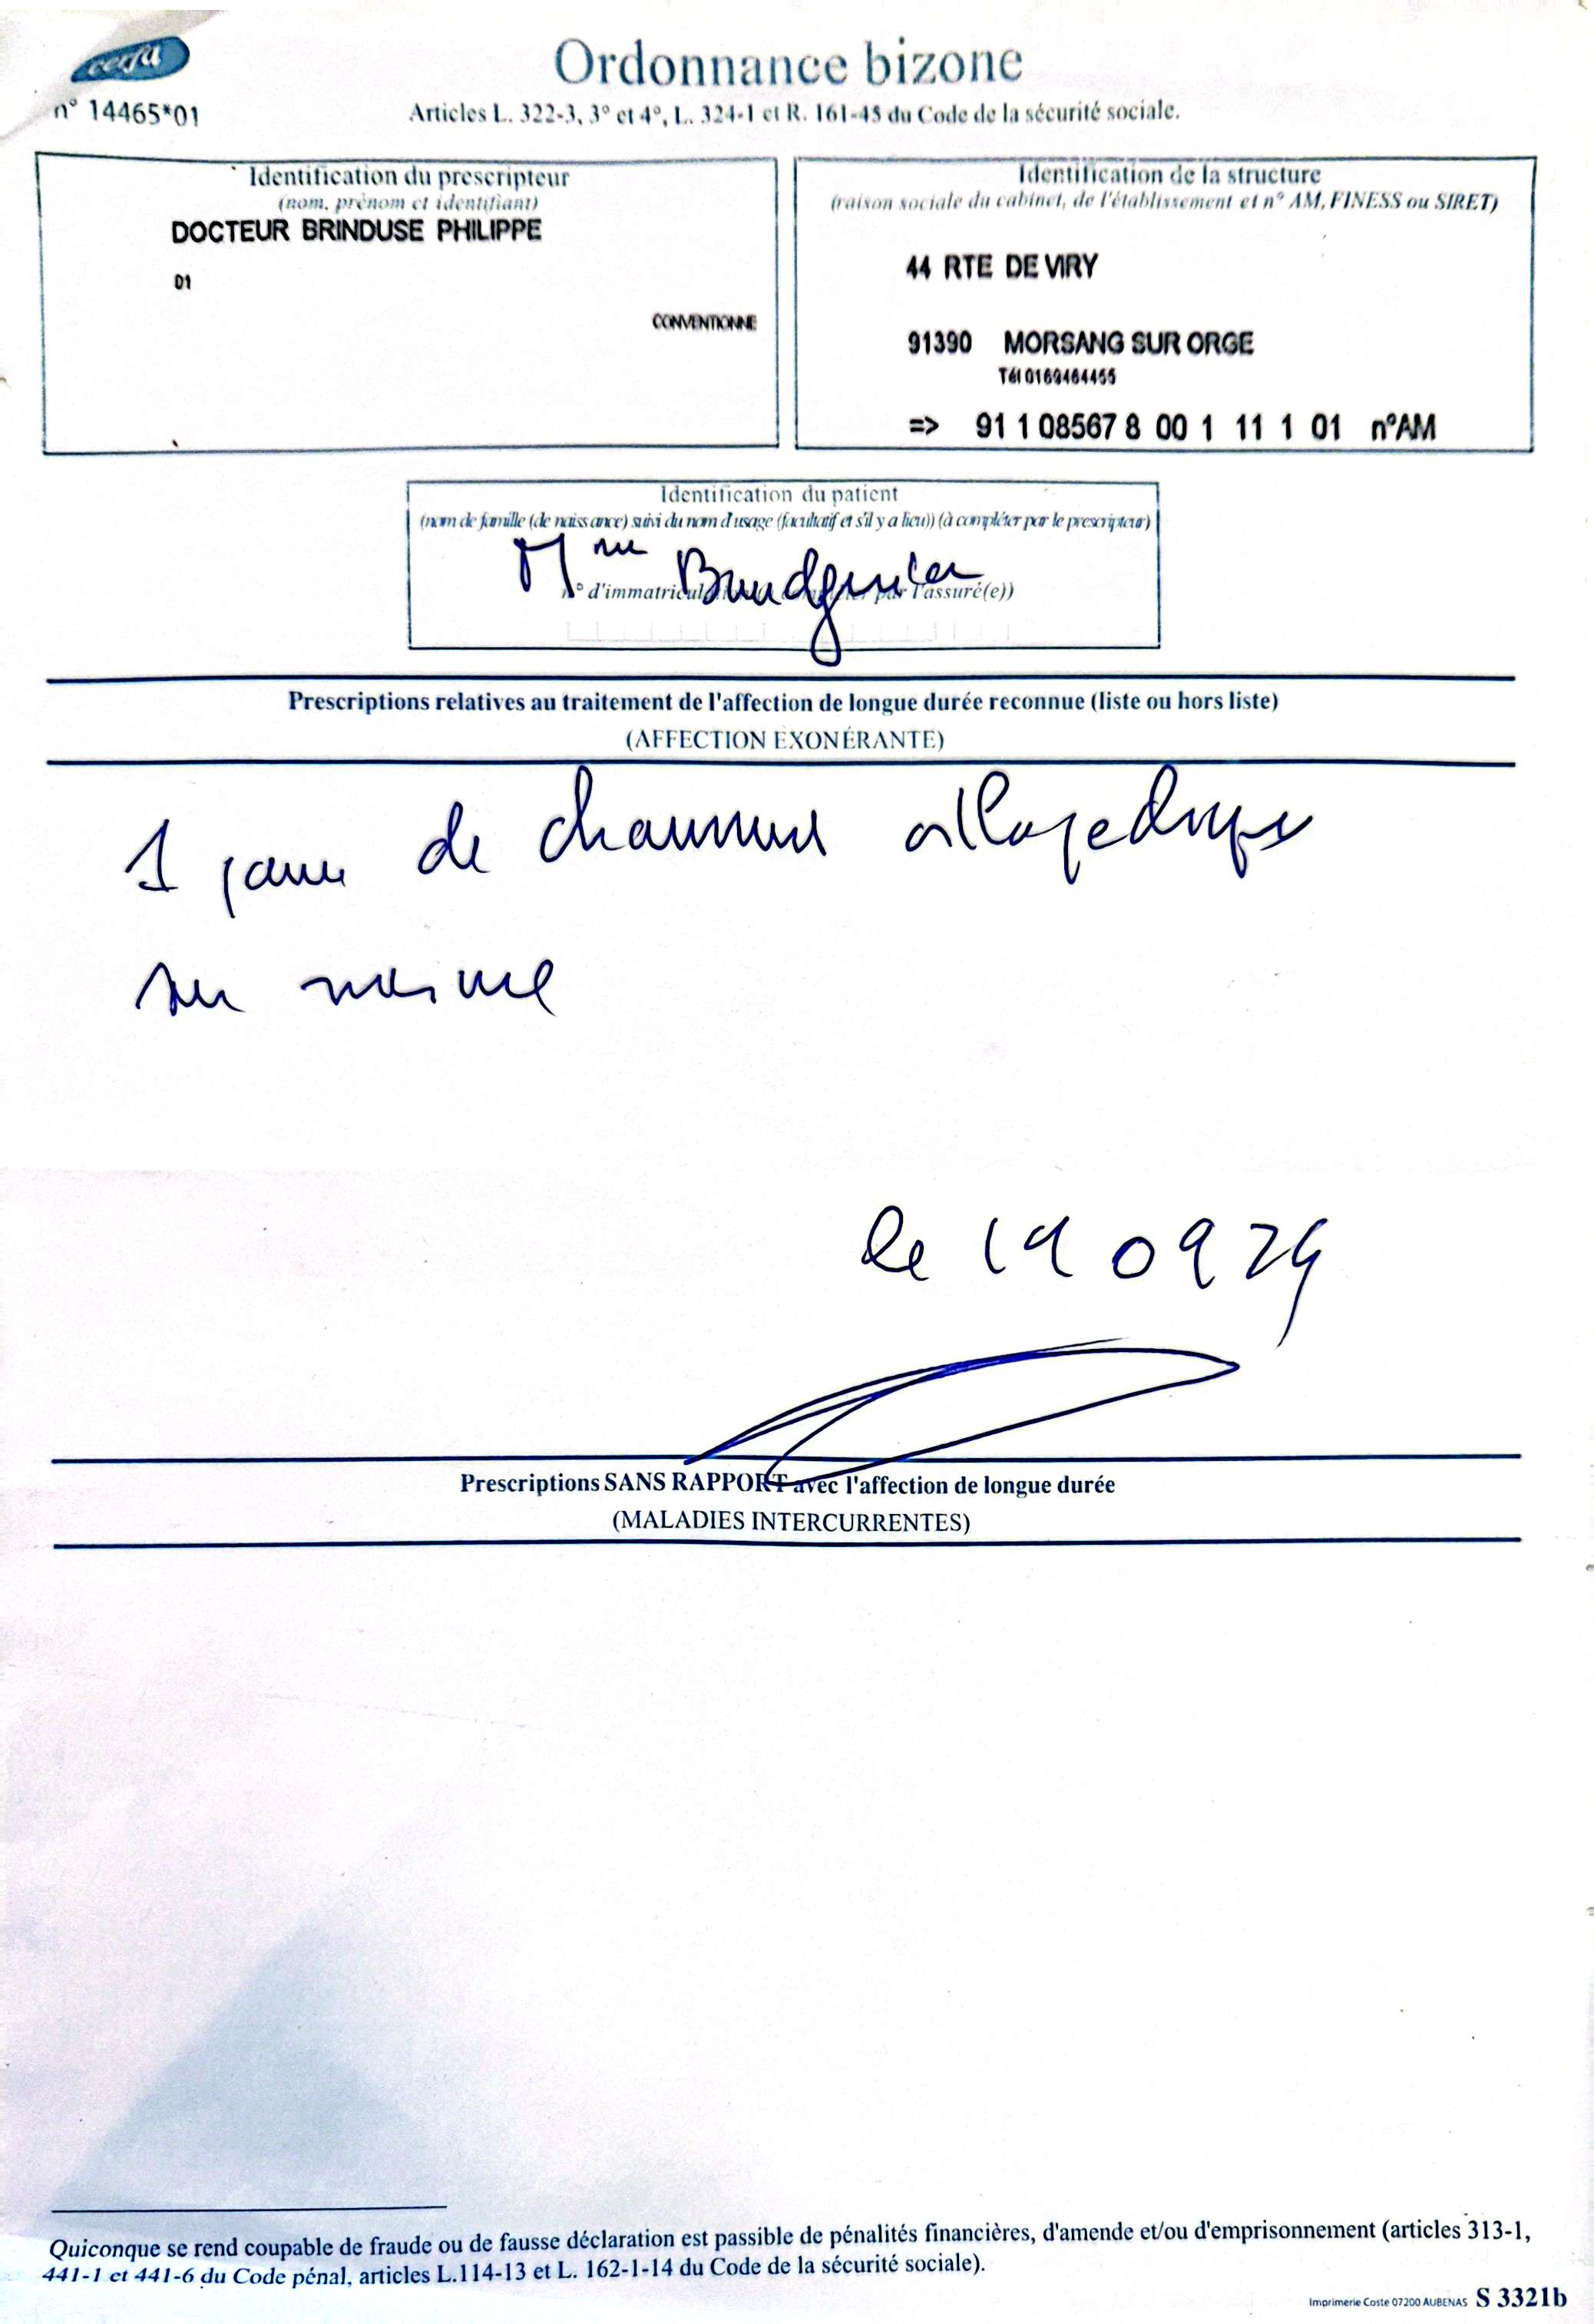 cerfa
n° 14465*01
Ordonnance bizone
Articles L. 322-3, 3° et 4°, L. 324-1 et R. 161-45 du Code de la sécurité sociale.
Identification du prescripteur
(nom, prénom et identifiant)
DOCTEUR BRINDUSE PHILIPPE
01
CONVENTIONNE
Identification de la structure
(raison sociale du cabinet, de l'établissement et n° AM, FINESS ou SIRET)
44 RTE DE VIRY
91390 MORSANG SUR ORGE
Tél 0169464455
=> 91 1 08567 8 00 1 11 1 01 n°AM
Identification du patient
(nom de famille (de naissance) suivi du nom d'usage (facultatif et s'il y a lieu)) (à compléter par le prescripteur)
Mme
n° d'immatriculation (à compléter par l'assuré(e))
Prescriptions relatives au traitement de l'affection de longue durée reconnue (liste ou hors liste)
(AFFECTION EXONÉRANTE)
1 paire de chaussures orthopédiques
sur mesure
le 19 09 24
Prescriptions SANS RAPPORT avec l'affection de longue durée
(MALADIES INTERCURRENTES)
Quiconque se rend coupable de fraude ou de fausse déclaration est passible de pénalités financières, d'amende et/ou d'emprisonnement (articles 313-1,
441-1 et 441-6 du Code pénal, articles L.114-13 et L. 162-1-14 du Code de la sécurité sociale).
Imprimerie Coste 07200 AUBENAS S 3321b